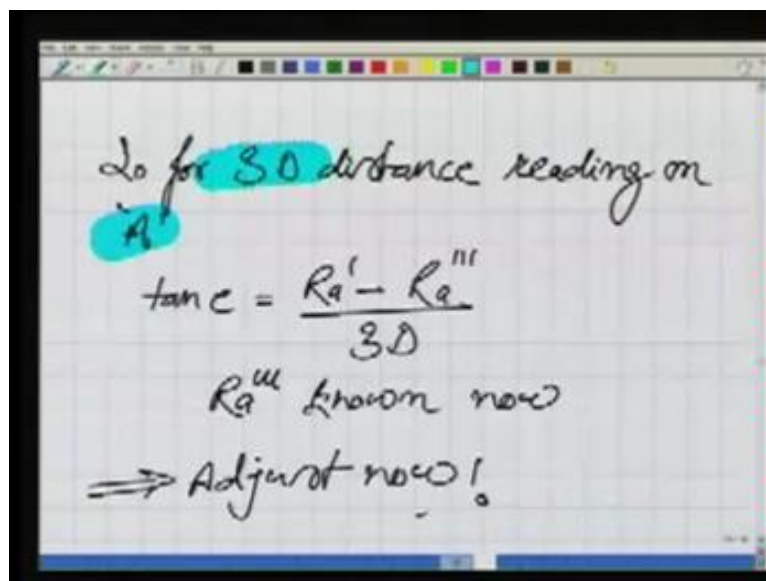 So for 3D distance reading on
'A'
tan e = Ra' - Ra''' / 3D
Ra''' known now
⇒ Adjust now!